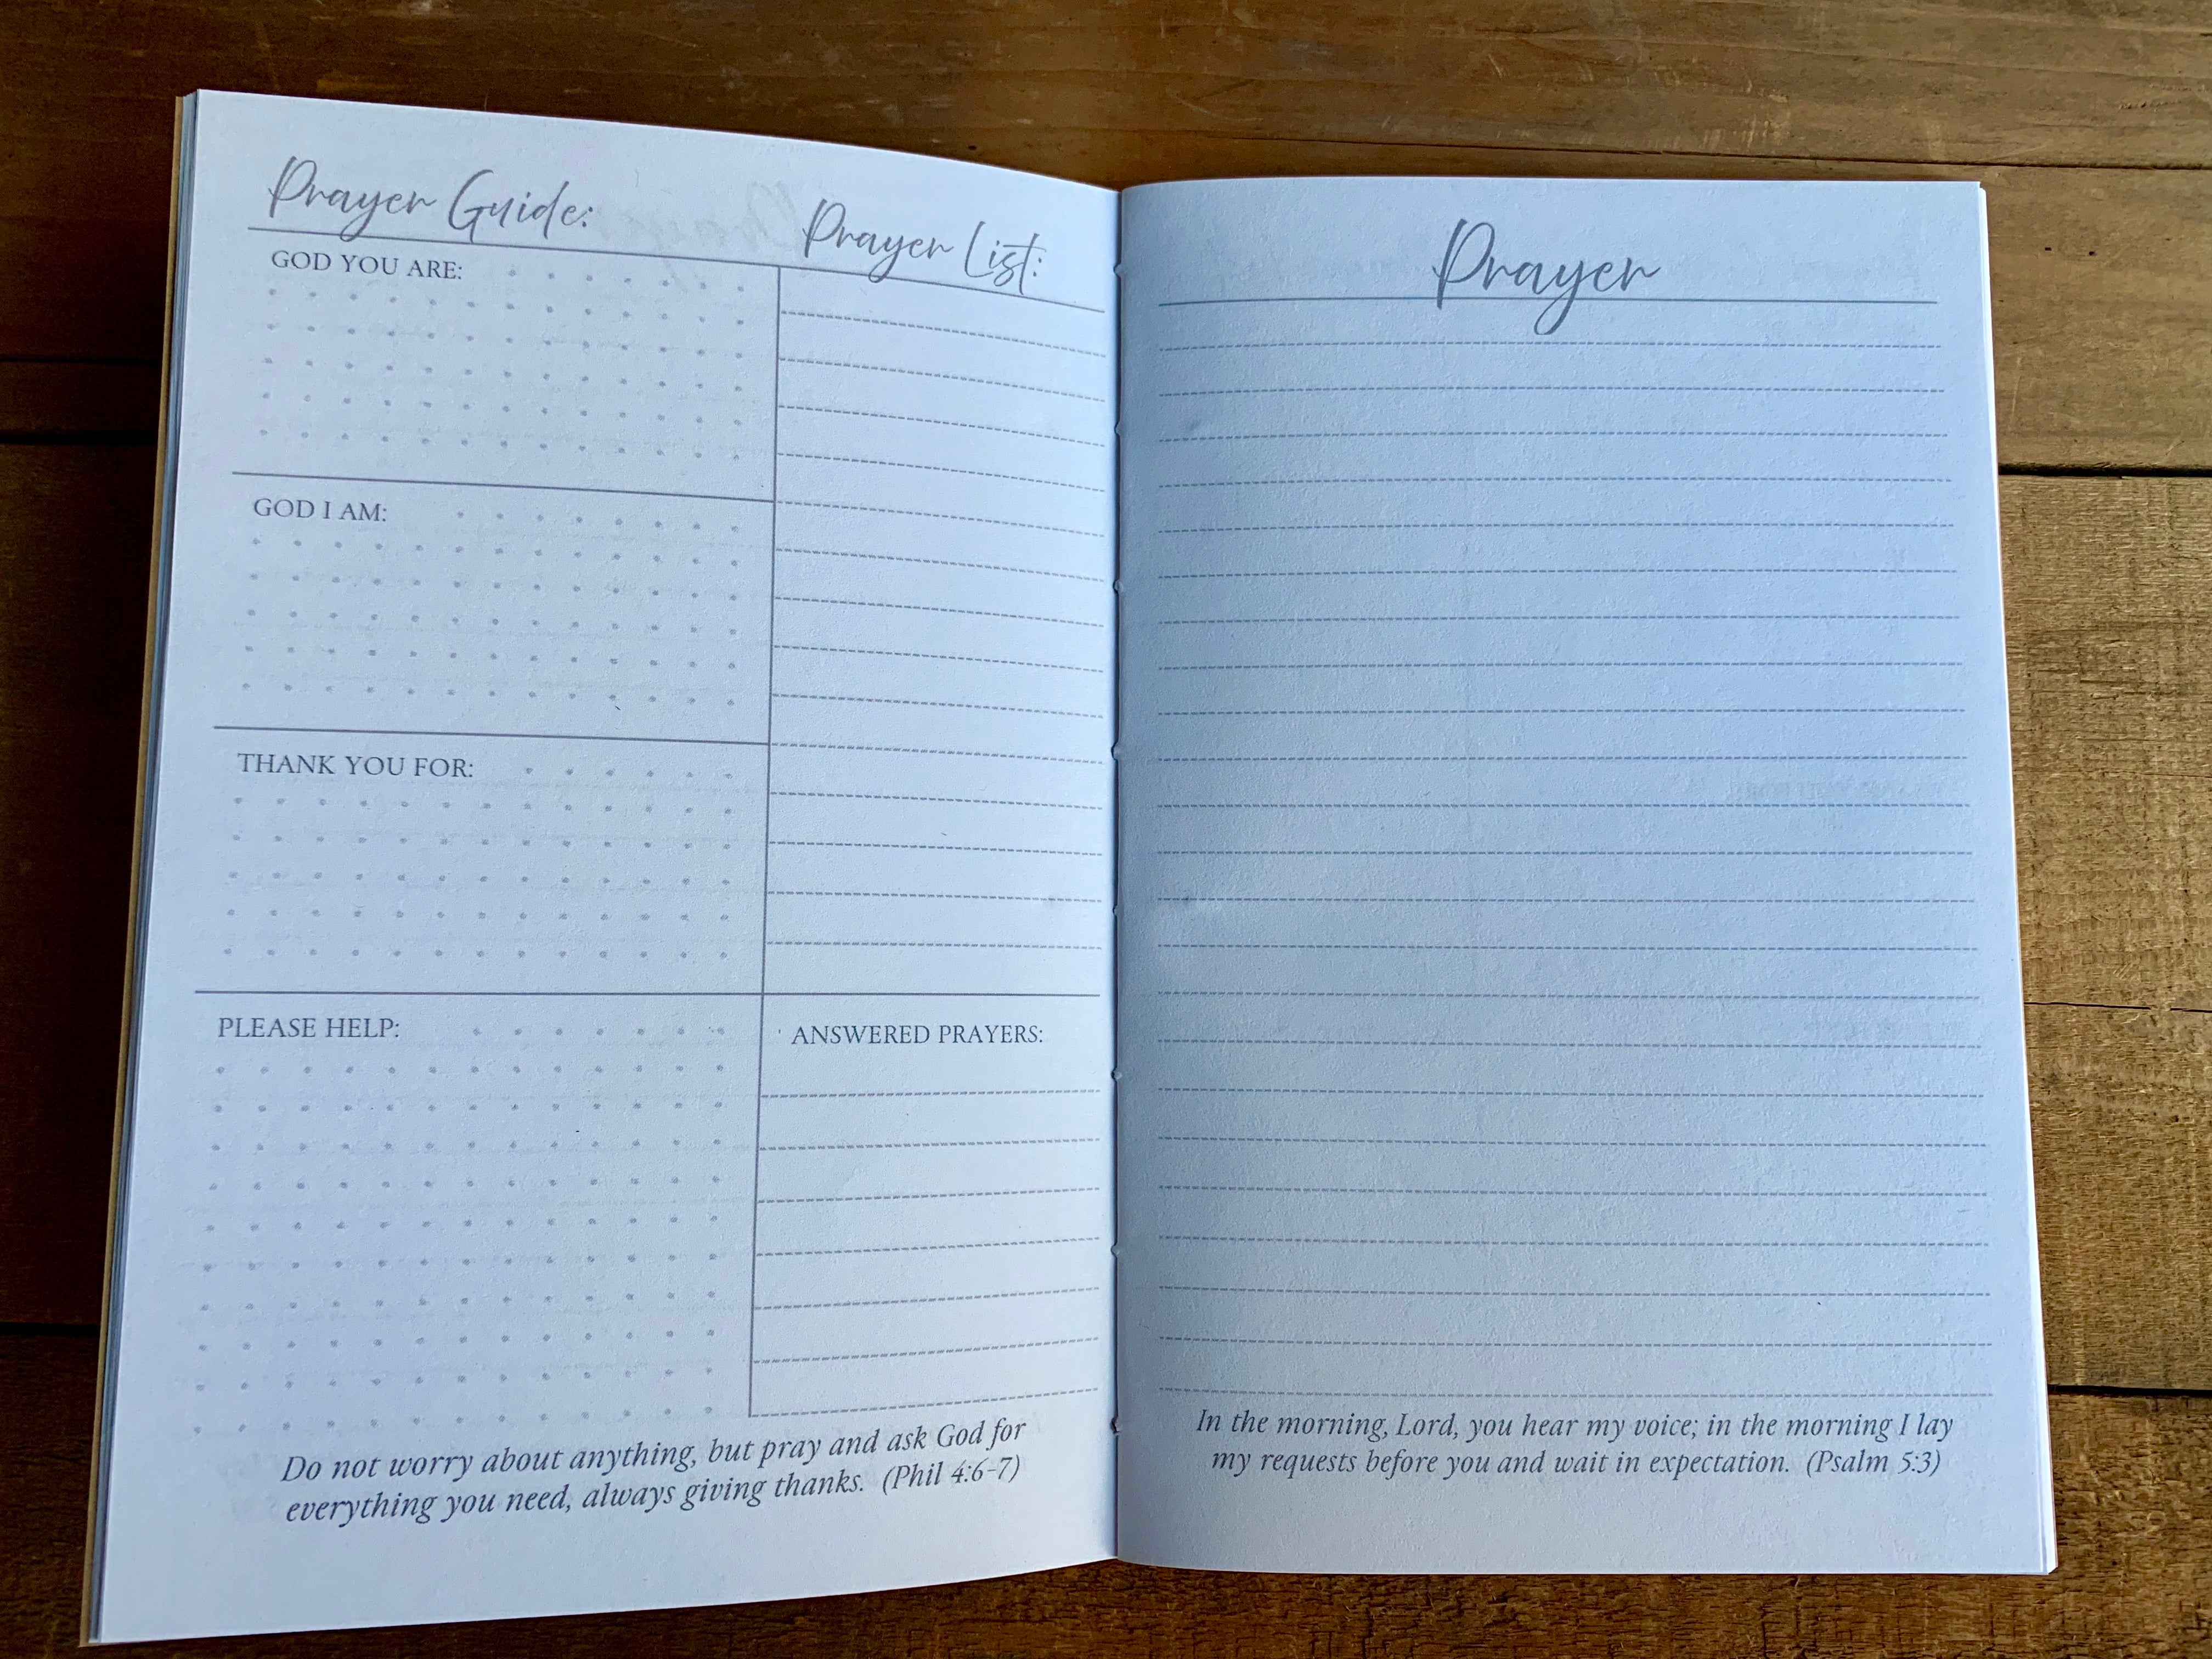 Prayer Guide:
Prayer List:
GOD YOU ARE:
GOD I AM:
THANK YOU FOR:
PLEASE HELP:
ANSWERED PRAYERS:
Do not worry about anything, but pray and ask God for
everything you need, always giving thanks. (Phil 4:6-7)
Prayer
In the morning, Lord, you hear my voice; in the morning I lay
my requests before you and wait in expectation. (Psalm 5:3)